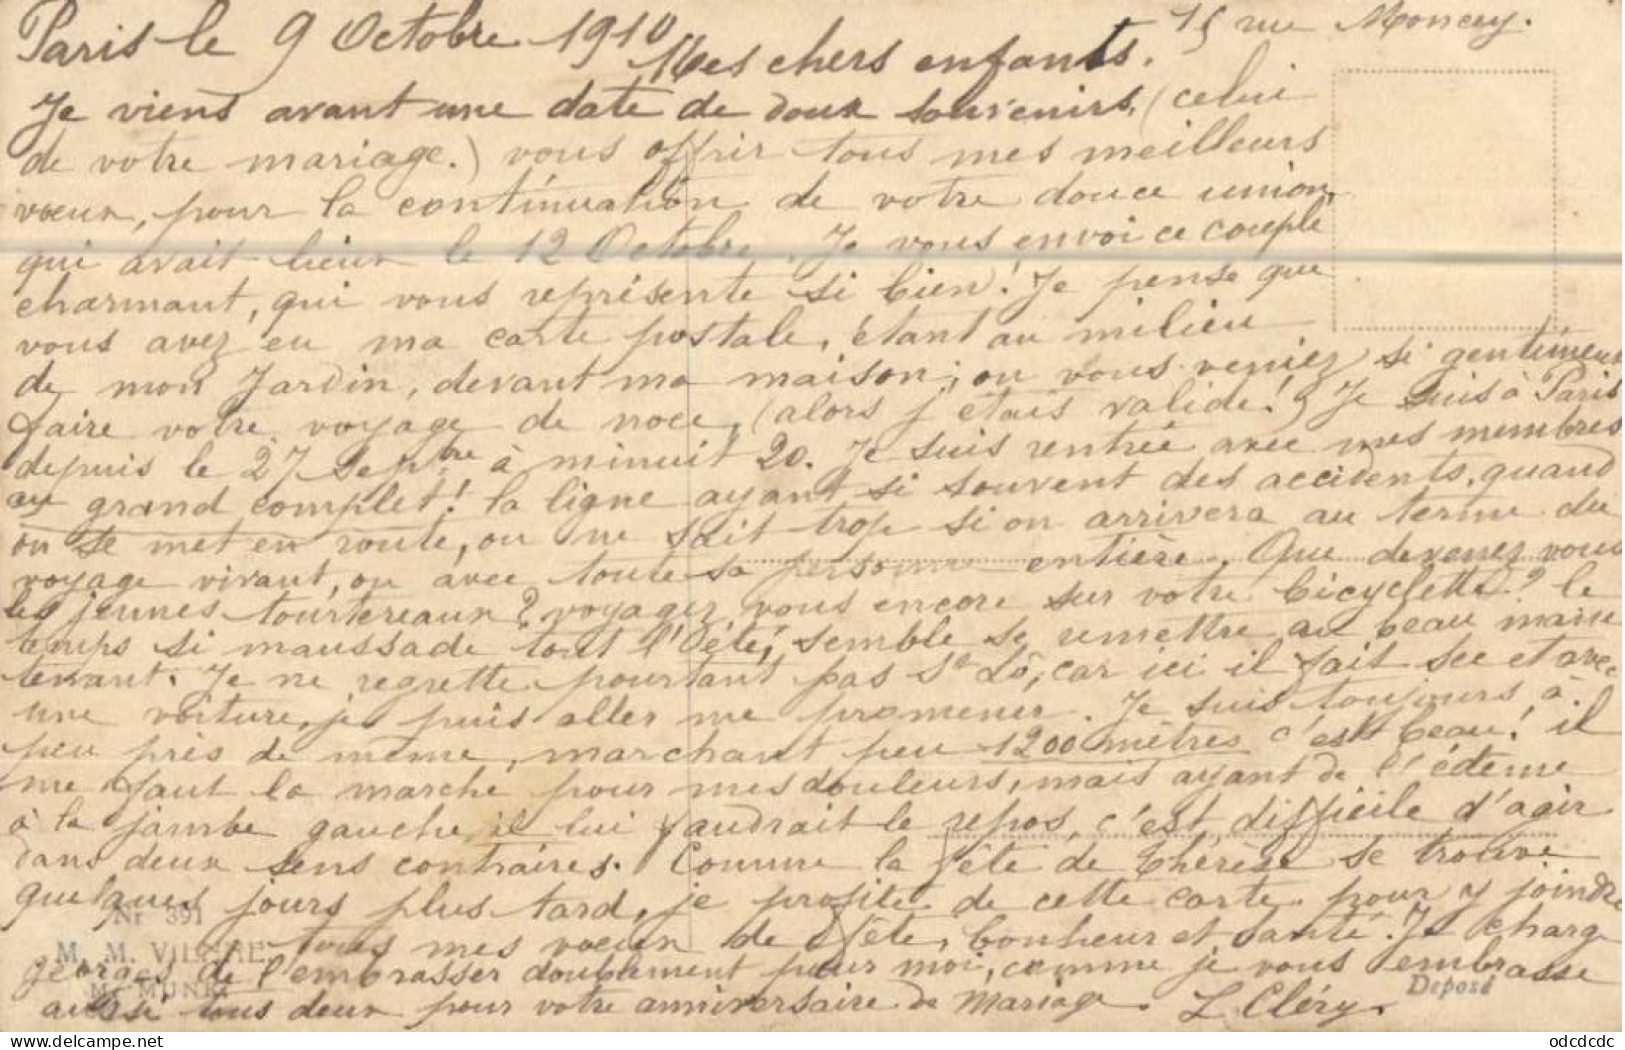 Paris le 9 Octobre 1910 15 rue Moncey.
Mes chers enfants.
Je viens avant une date de doux souvenirs, (celui
de votre mariage.) vous offrir tous mes meilleurs
vœux, pour la continuation de votre douce union,
qui avait lieu le 12 Octobre. Je vous envoi ce couple
charmant, qui vous représente si bien! Je pense que
vous avez eu ma carte postale, étant au milieu
de mon Jardin, devant ma maison; ou vous veniez si gentiment
faire votre voyage de noce, (alors j'étais valide!) Je suis à Paris
depuis le 27 Septbre à minuit 20. Je suis rentrée avec mes membres
au grand complet! la ligne ayant si souvent des accidents, quand
on se met en route, on ne sait trop si on arrivera au terme du
voyage vivant, ou avec toute sa personne entière. Que devenez vous
les jeunes tourtereaux? voyagez vous encore sur votre bicyclette? le
temps si maussade tout l'été, semble se remettre au beau mainte
tenant. Je ne regrette pourtant pas St Lô, car ici il fait sec et avec
une voiture, je puis aller me promener. Je suis toujours, à
peu près de même, marchant peu 1200 mètres c'est beau! il
me faut la marche pour mes douleurs, mais ayant de l'édeme
à la jambe gauche, il lui faudrait le repos, c'est difficile d'agir
dans deux sens contraires. Comme la fête de Thérèse se trouve
quelques jours plus tard, je profite de cette carte pour y joindre
Nr 391
tous mes vœux de fête, bonheur et santé. Je charge
M. M. VIENNE
georges de l'embrasser doublement pour moi, comme je vous embrasse
M. MUNK
Deposé
aussi tous deux pour votre anniversaire de Mariage. L Cléry.
odcdcdc